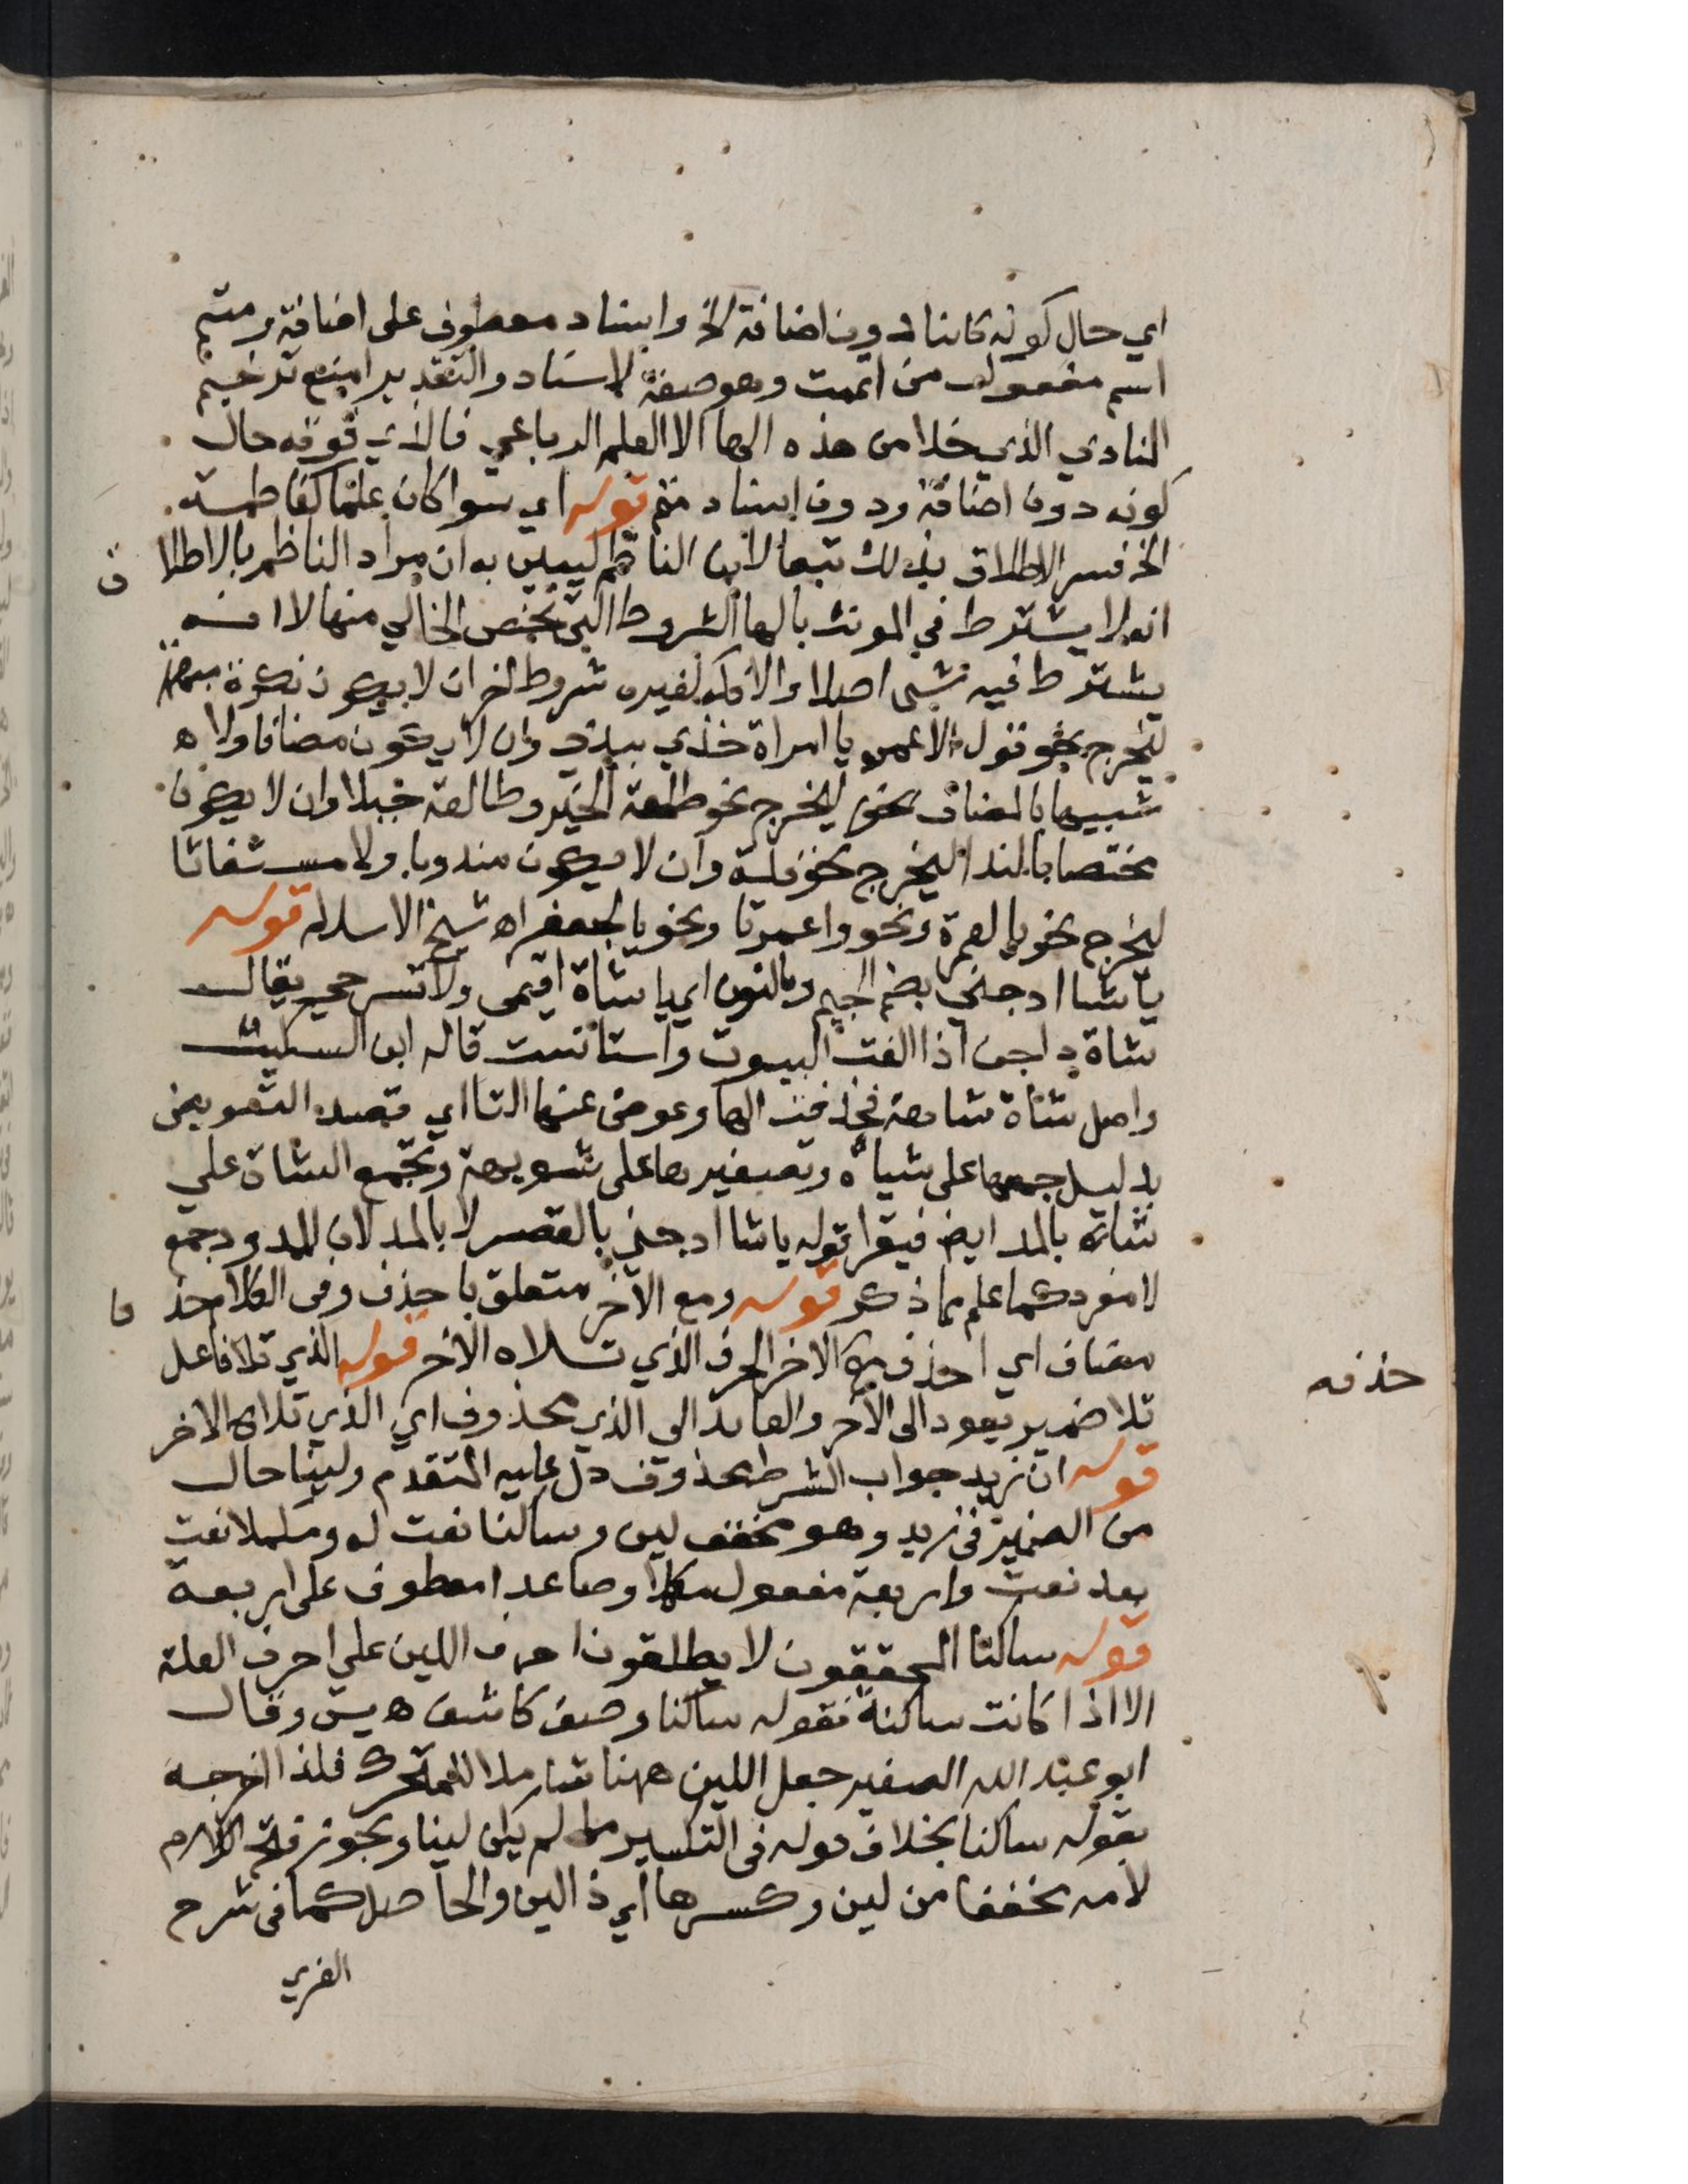 اي حال كونه كائنا دون اضافة الخ واسناد معطوف على اضافة ومتم
اسم مفعول من اتممت وهو صفة لاسناد والتقدير امنع ترخيم
المنادي الذي خلا من هذه الها الا العلم الرباعي فالذي فوقه حال
كونه دون اضافة ودون اسناد متم قوله اي سوا كان علما كفاطمة
الخ فسر الاطلاق بذلك تبعا لابن الناظم ليبين به ان مراد الناظم بالاطلا ق
انه لا يشترط في المونث بالها الشروط التي تخص الخالي منها لا انه
يشترط فيه شي اصلا والا ذكر لغيره شروط اخر ان لا يكون نكرة مبهمة
ليخرج نحو قول الاعمى يا امراة خذي بيدي وان لا يكون مضافا ولا ه
شبيها بالمضاف ليخرج نحو طلعة الخير وطالعة جبلا وان لا يكون
مختصا بالندا ليخرج نحو فلة وان لا يكون مندوبا ولا مستغاثا
ليخرج نحو يالعمرة ونحو واعمرتا ونحو يالجعفر اه شيخ الاسلام قوله
يا شا ادجني بضم الجيم وبالنون اي يا شاة اقيمي ولا تسرحي يقال
شاة داجن اذا الفت البيوت واستانست قاله ابن السكيت
واصل شاة شاهة فحذفت الها وعوض عنها التا اي قصد التعويض
بدليل جمعها على شياه وتصغيرها على شويهة وتجمع الشاة علي
شاه بالمد ايض فيقرا قوله يا شا ادجني بالقصر لا بالمد لان الممدود جمع
لا مفرد كما علم مما ذكر قوله ومع الآخر متعلق باحذف وفى الكلام حذ ف
مضاف اي احذف مع الاخر الحرف الذي تلاه الآخر قوله الذي تلا فاعل
حذفه
تلا ضمير يعود الى الآخر والعائد الى الذي محذوف اي الذي تلاه الاخر
قوله ان زيد جواب الشرط محذوف دل عليه المتقدم ولينا حال
من الضمير فى زيد وهو مخفف لين وساكنا نعت له ومكملا نعت
بعد نعت واربعة مفعول مكملا وصاعدا معطوف على اربعة
قوله ساكنا المحققون لا يطلقون احرف اللين علي احرف العلة
الا اذا كانت ساكنة فقوله ساكنا وصف كاشف ه يس وقال
ابو عبد الله الصغير جعل اللين ههنا شاملا للمتحرك فلذا اخرجه
بقوله ساكنا بخلاف قوله فى التكسير ما لم يكن لينا ويجوز فتح اللام
لامه مخففا من لين وكسرها اي ذا لين والحاصل كما فى شرح
الغزي